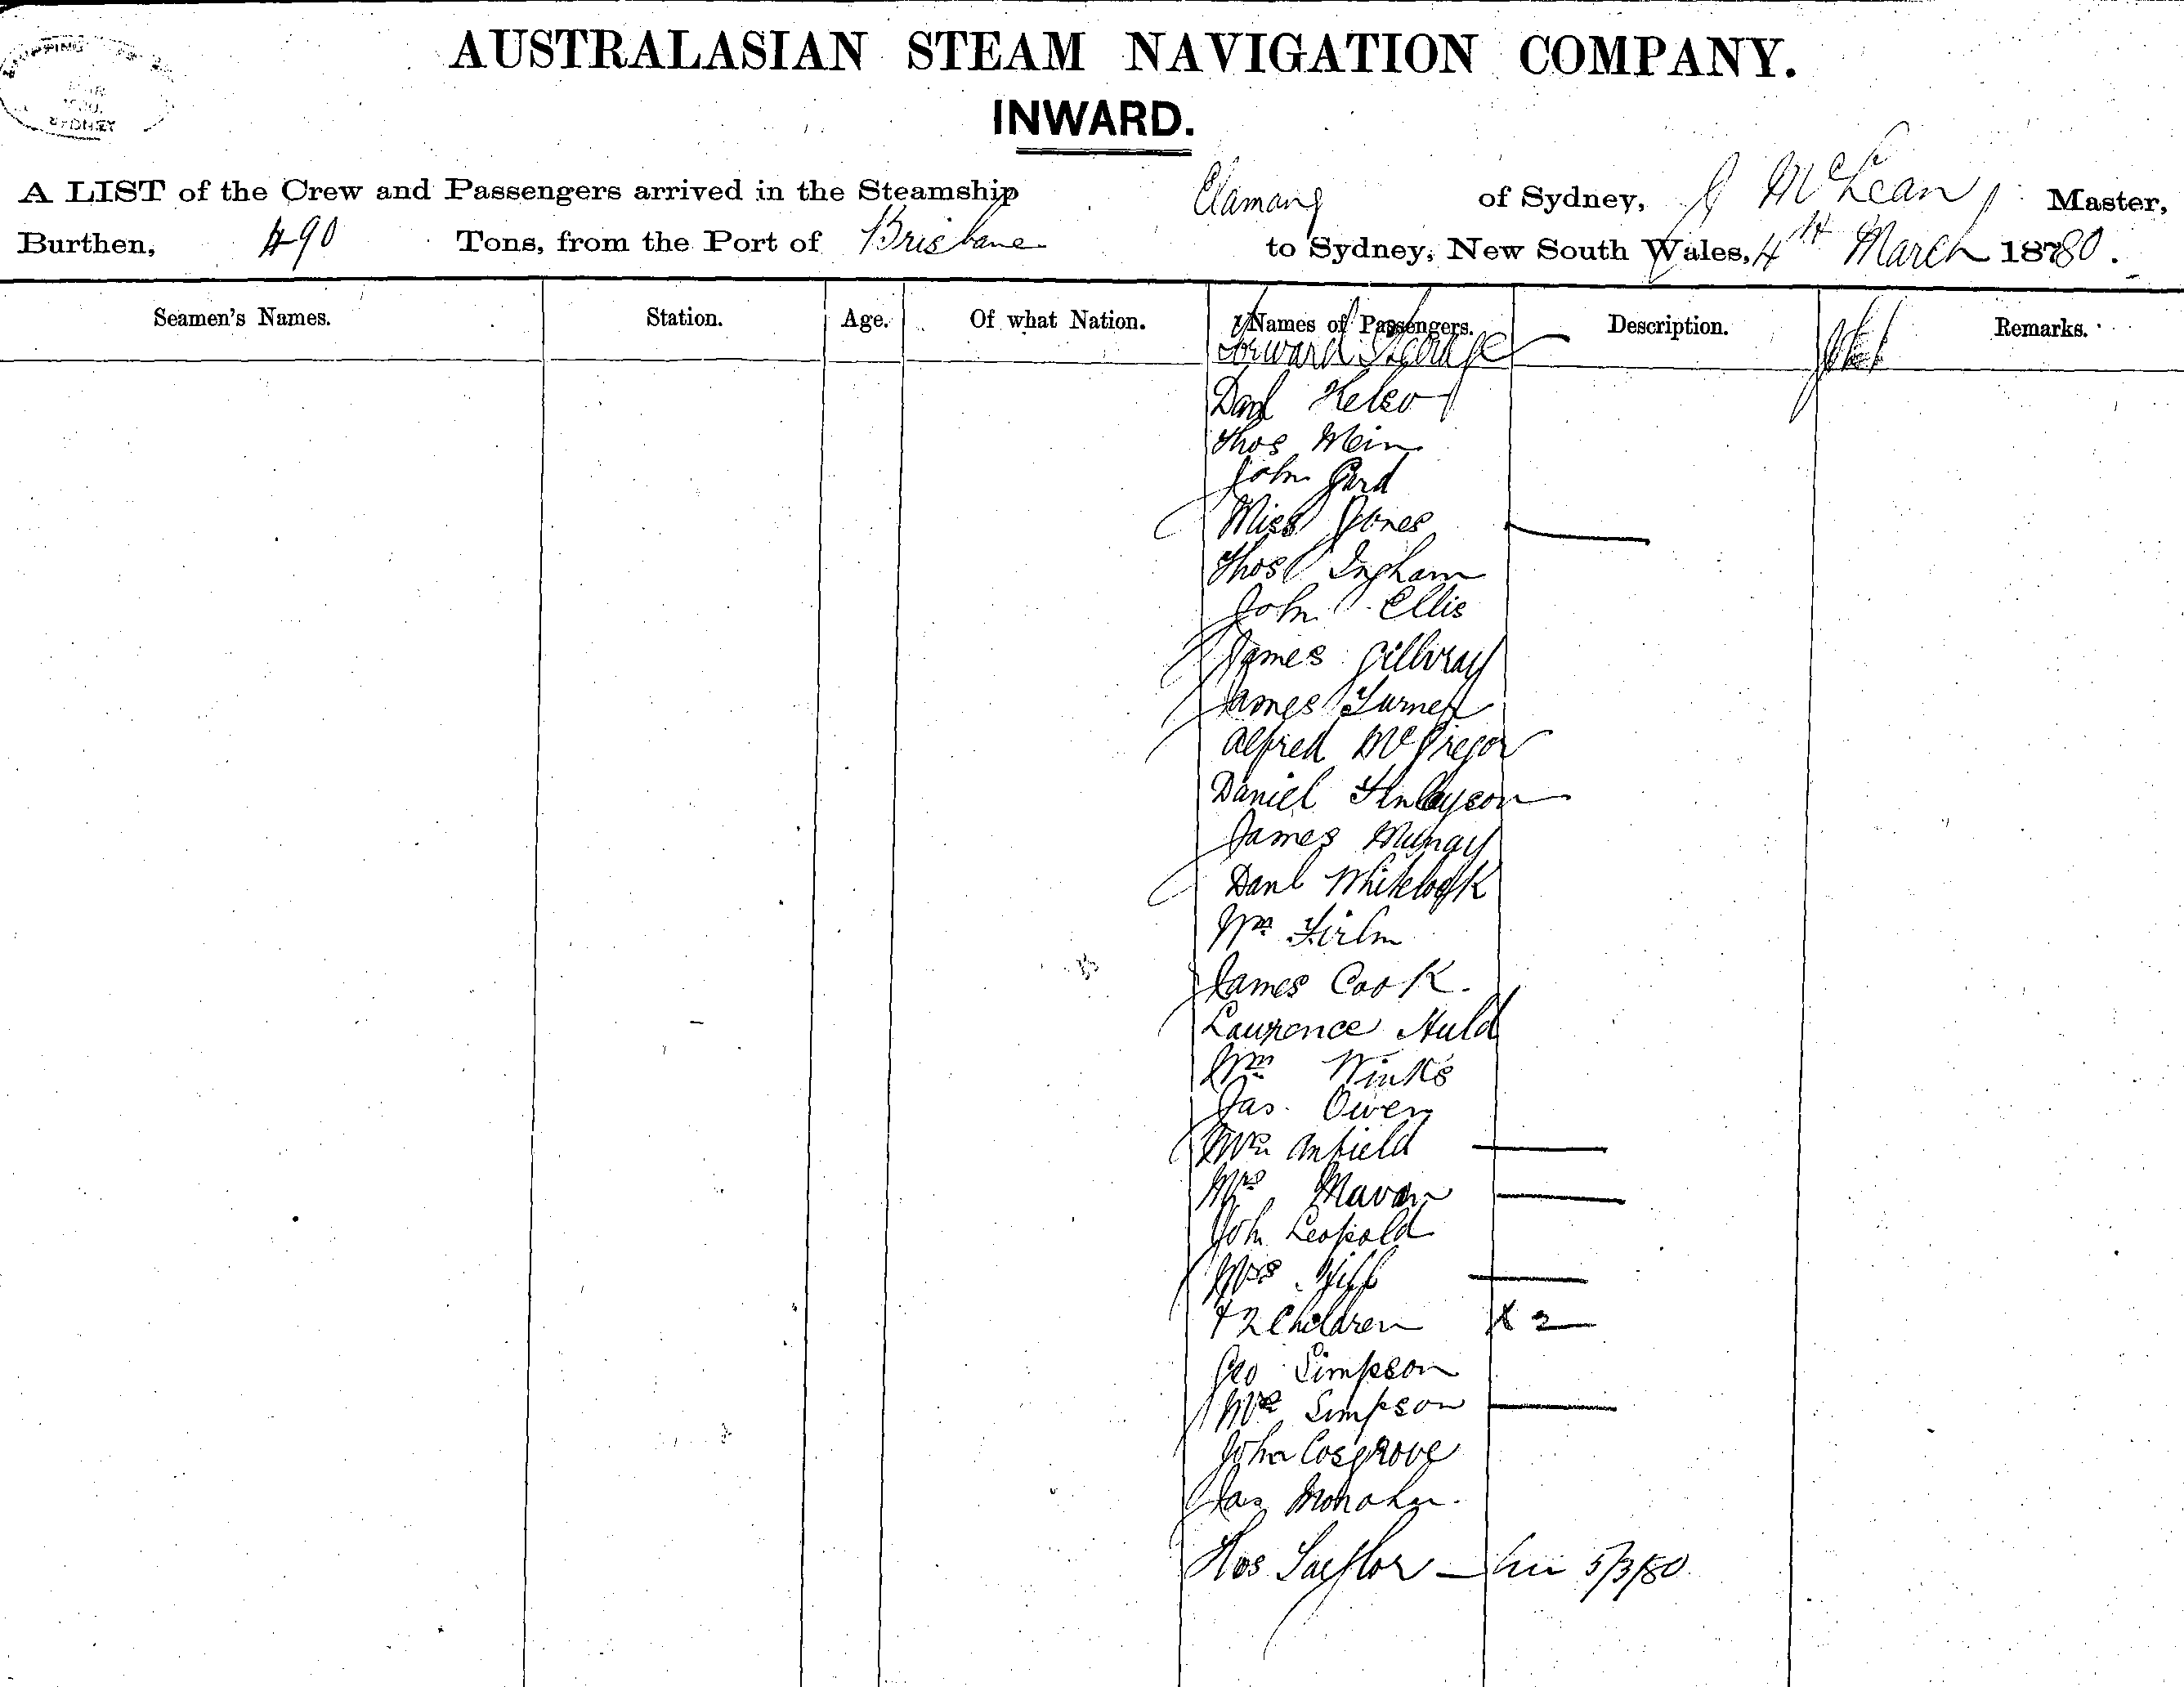 SHIPPING
SYDNEY
AUSTRALASIAN STEAM NAVIGATION COMPANY.
INWARD.
A LIST of the Crew and Passengers arrived in the Steamship Elamang of Sydney, J McLean, Master,
Burthen, 490 Tons, from the Port of Brisbane to Sydney, New South Wales, 4th March 18780.
Seamen's Names. Station. Age. Of what Nation. Names of Passengers. Description. Remarks.
Forward Steerage
Danl Kelso
Thos Mein
John Gard
Miss Jones
Thos Ingham
John Ellis
James Gillvray
James Turner
Alfred McGregor
Daniel Finlayson
James Murray
Danl Whitelock
Wm
James Cook.
Laurence Auld
Wm Winks
Jas. Owen
Mrs Anfield
Mrs
Joh Leopold
Mrs
& 2 Children X 2
Geo Simpson
Mrs Simpson
John Cosgrove
Jas Monahan.
Thos Taylor — 5/3/80